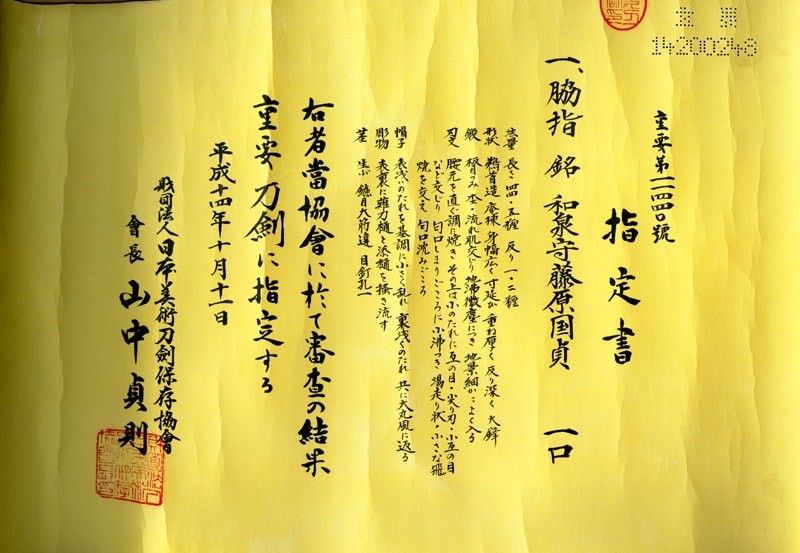 重要
14200248
重要第一一四四〇號
指定書
一、脇指 銘 和泉守藤原国貞 一口
法量 長さ 四四・五糎 反り 一・二糎
形状 鵜首造 庵棟 身幅広く 寸延び 重ね厚く 反り深く 大鋒
鍛 板目つみ 杢・流れ肌交じり 地沸微塵につき 地景細かによく入る
刃文 腰元を直ぐ調に焼き その上は小のたれに互の目・尖り刃・小互の目
など交じり 匂口しまりごころに小沸つき 湯走り状・小さな飛
焼を交え 匂口沈みごころ
帽子 表浅いのたれを基調に小さく乱れ 裏浅くのたれ 共に大丸風に返る
彫物 表裏に薙刀樋と添樋を掻き流す
茎 生ぶ 鑢目大筋違 目釘孔一
右者當協會に於て審査の結果
重要刀劍に指定する
平成十四年十月十一日
財団法人日本美術刀劍保存協會
會長 山中貞則